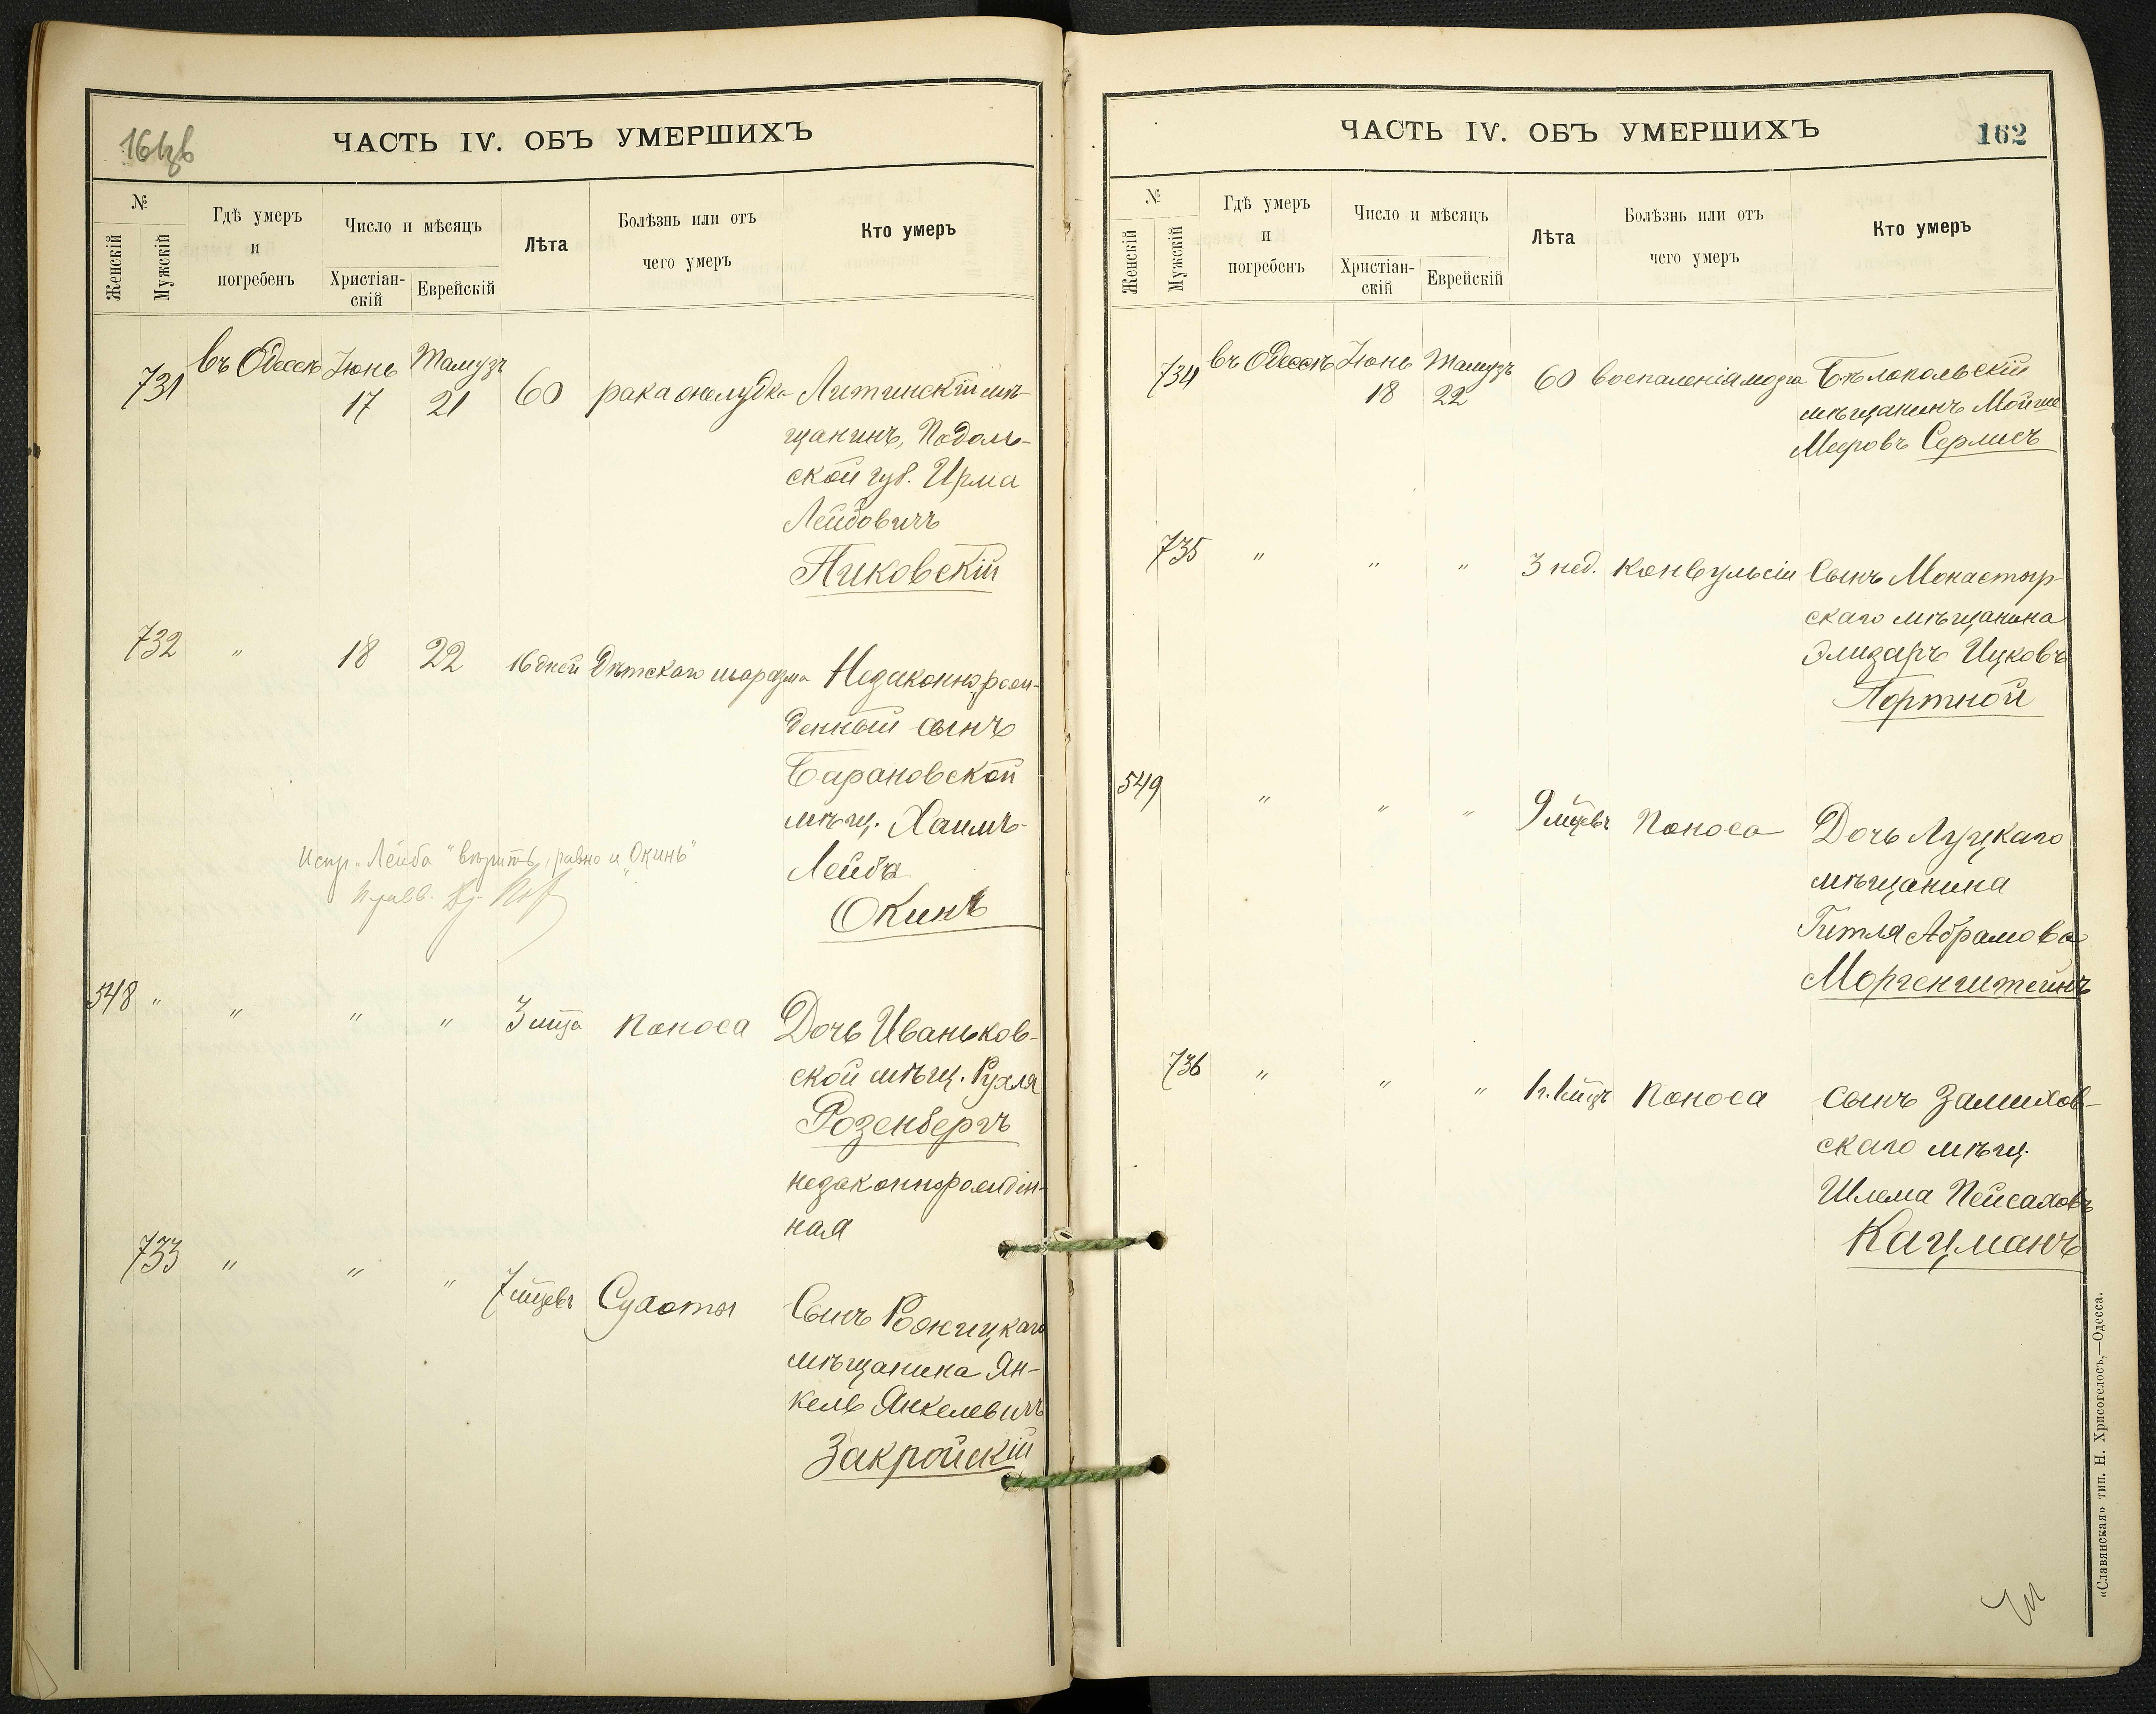 161об
ЧАСТЬ IV. ОБЪ УМЕРШИХЪ
№
Женскій
Мужскій
Гдѣ умеръ
и
погребенъ
Число и мѣсяцъ
Христіан-
скій
Еврейскій
Лѣта
Болѣзнь или отъ
чего умеръ
Кто умеръ
731 въ Одессѣ Іюнь 17 Тамузъ 21 60 рака желудка Литинскій мѣ-
щанинъ, Подоль-
ской губ. Ирма
Лейбовичъ
Пиковскій
732 " 18 22 16 дней Дѣтскаго маразма Незаконнорож-
денный сынъ
Барановской
мѣщ. Хаимъ-
Лейба
Окинъ
Испр. "Лейба" вѣрить, равно и "Окинъ"
548 " " " " 3 мѣсца Поноса Дочь Иваньков-
ской мѣщ. Рухля
Розенбергъ
незаконнорожден-
ная
733 " " " 7 мѣсцевъ Сухоты Сынъ Рожицкаго
мѣщанина Ян-
кель Янкелевичъ
Закройскій
ЧАСТЬ IV. ОБЪ УМЕРШИХЪ
162
№
Женскій
Мужскій
Гдѣ умеръ
и
погребенъ
Число и мѣсяцъ
Христіан-
скій
Еврейскій
Лѣта
Болѣзнь или отъ
чего умеръ
Кто умеръ
734 въ Одессѣ Іюнь 18 Тамузъ 22 60 воспаленія мозга Бѣлопольскій
мѣщанинъ Мойше
Мееровъ Серлисъ
735 " " " 3 нед. Конвульсіи Сынъ Монастыр-
скаго мѣщанина
Элизаръ Ицковъ
Портной
549 " " " 9 мѣсцевъ Поноса Дочь Луцкаго
мѣщанина
Гитля Абрамова
Моргенштейнъ
736 " " " 1 г. 1 мѣсцъ Поноса Сынъ Замихов-
скаго мѣщ.
Шлема Пейсаховъ
Кацманъ
«Славянская» тип. Н. Хрисогелосъ,—Одесса.